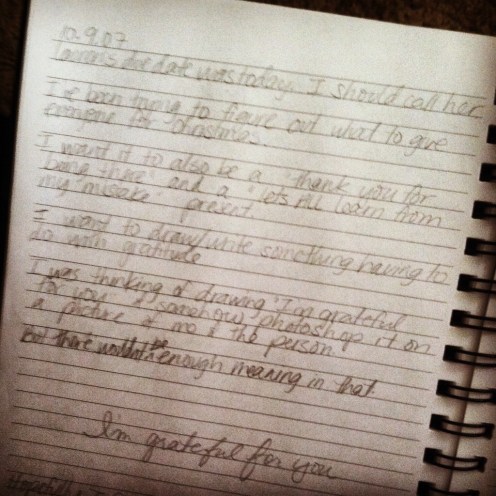 10.9.07
Lauren's due date was today. I should call her
I've been trying to figure out what to give
everyone for Christmas.
I want it to also be a "thank you for
being there" and a "lets All learn from
my mistake" present.
I want to draw/write something having to
do with gratitude
I was thinking of drawing "I'm grateful
for you" & somehow photoshop it on
a picture of me & the person
But there wouldnt be enough meaning in that.
I'm grateful for you
Hopefully I